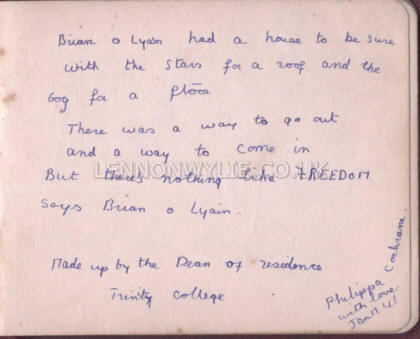 Brian o Lyain had a house to be sure
with the stars for a roof and the
bog for a floor
There was a way to go out
and a way to come in
LENNONWYLIE.CO.UK
But theres nothing like FREEDOM
says Brian o Lyain.
Made up by the Dean of residence
Trinity College
Philippa Cochrane.
with love
Jan 17 41